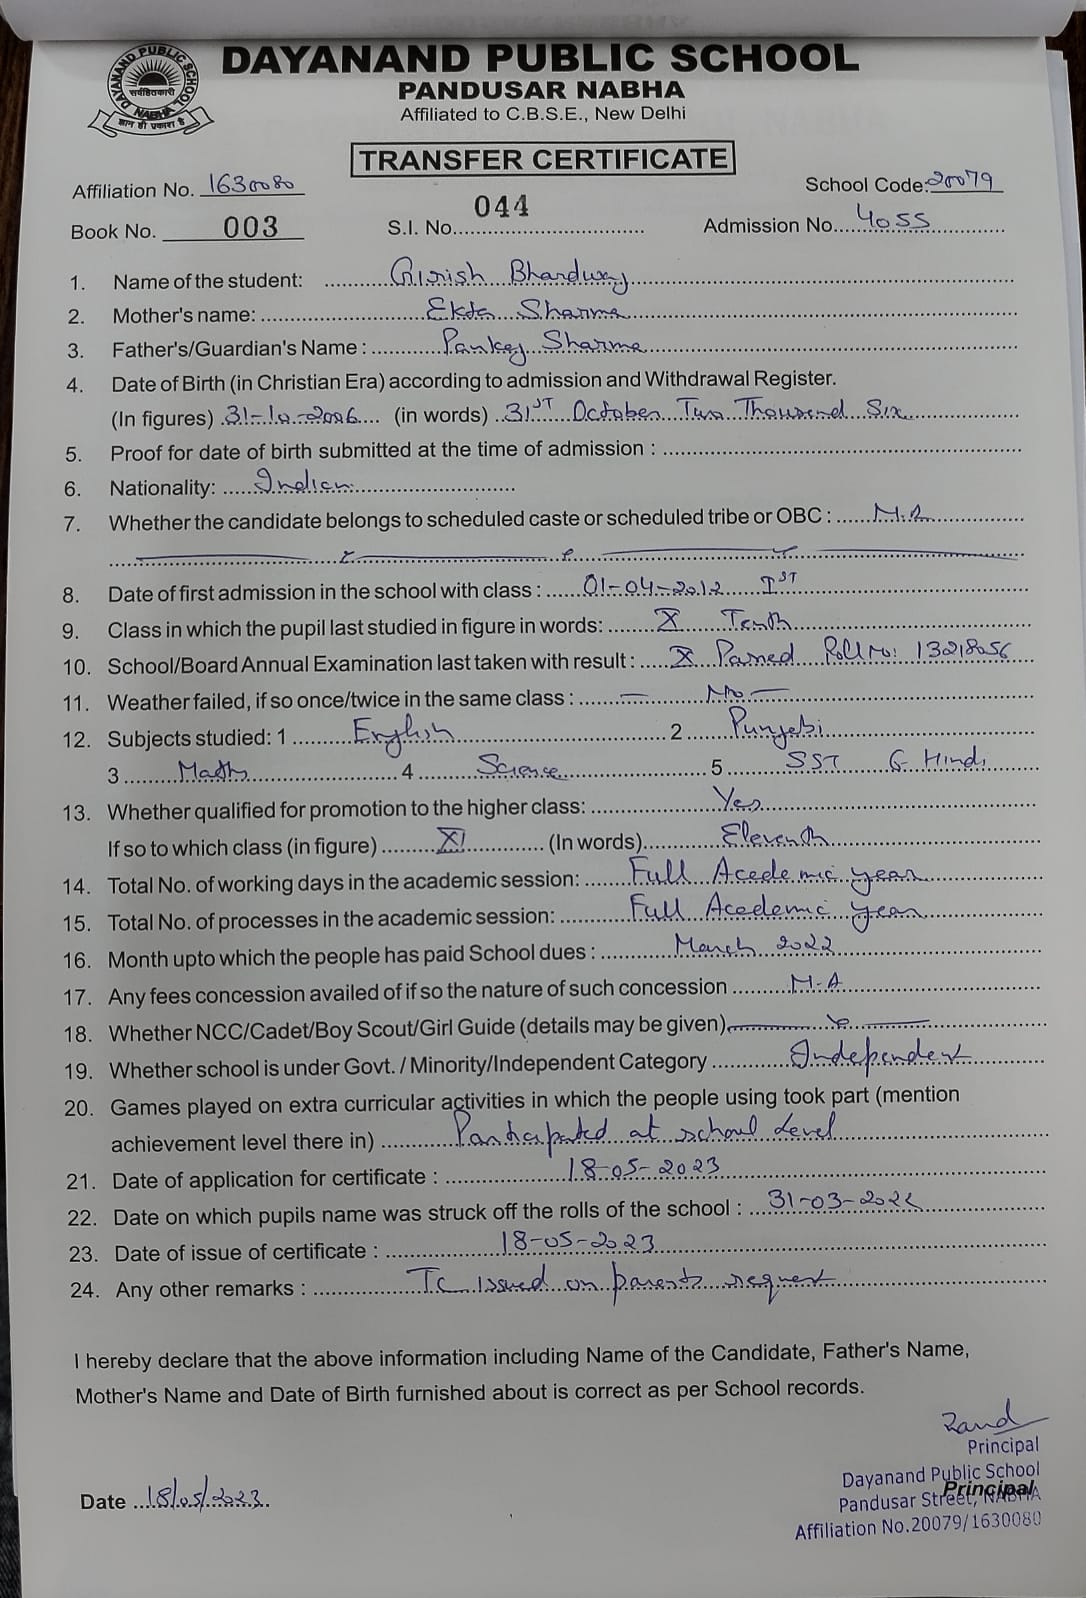 DAYANAND PUBLIC SCHOOL NABHA
सर्वहितकारी
ज्ञान ही प्रकाश है
DAYANAND PUBLIC SCHOOL
PANDUSAR NABHA
Affiliated to C.B.S.E., New Delhi
TRANSFER CERTIFICATE
Affiliation No. 1630080 School Code: 20079
Book No. 003 S.I. No. 044 Admission No. 4055
1. Name of the student: Girish Bhardwaj
2. Mother's name: Ekta Sharma
3. Father's/Guardian's Name : Pankaj Sharma
4. Date of Birth (in Christian Era) according to admission and Withdrawal Register.
(In figures) 31-10-2006 (in words) 31ST October Two Thousand Six
5. Proof for date of birth submitted at the time of admission :
6. Nationality: Indian
7. Whether the candidate belongs to scheduled caste or scheduled tribe or OBC : N.A
8. Date of first admission in the school with class : 01-04-2012 IST
9. Class in which the pupil last studied in figure in words: X Tenth
10. School/Board Annual Examination last taken with result : X Passed Roll no: 13218056
11. Weather failed, if so once/twice in the same class : — No —
12. Subjects studied: 1 English 2 Punjabi
3 Math 4 Science 5 SST 6 Hindi
13. Whether qualified for promotion to the higher class: Yes
If so to which class (in figure) XI (In words) Eleventh
14. Total No. of working days in the academic session: Full Academic year
15. Total No. of processes in the academic session: Full Academic year
16. Month upto which the people has paid School dues : March 2022
17. Any fees concession availed of if so the nature of such concession N.A
18. Whether NCC/Cadet/Boy Scout/Girl Guide (details may be given)
19. Whether school is under Govt. / Minority/Independent Category Independent
20. Games played on extra curricular activities in which the people using took part (mention
achievement level there in) Participated at school Level
21. Date of application for certificate : 18-05-2023
22. Date on which pupils name was struck off the rolls of the school : 31-03-2022
23. Date of issue of certificate : 18-05-2023
24. Any other remarks : TC issued on parents request
I hereby declare that the above information including Name of the Candidate, Father's Name,
Mother's Name and Date of Birth furnished about is correct as per School records.
Principal
Dayanand Public School
Date 18/05/2023 Principal
Pandusar Street, NABHA
Affiliation No.20079/1630080